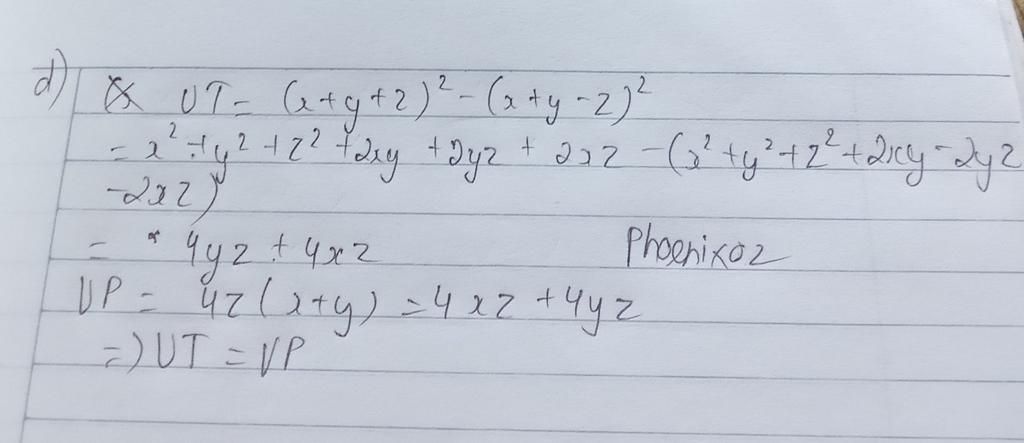 d) VT = (x+y+z)² - (x+y-z)²
= x² + y² + z² + 2xy + 2yz + 2xz - (x² + y² + z² + 2xy - 2yz
-2xz)
= 4yz + 4xz Phoenix02
VP = 4z(x+y) = 4xz + 4yz
=) VT = VP